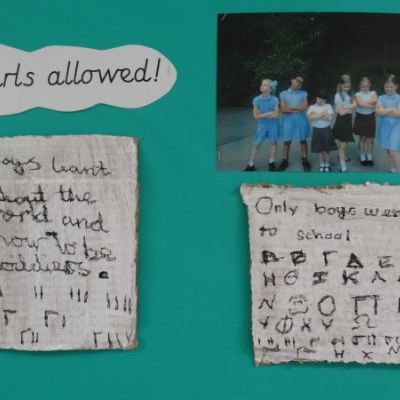 irls allowed!
oys learnt
bout the
orld and
how to be
soldiers.
Only boys wen
to school.
Α Β Γ Δ Ε
Η Θ Ι Κ Λ
Ν Ξ Ο Π
Υ Φ Χ Ψ Ω